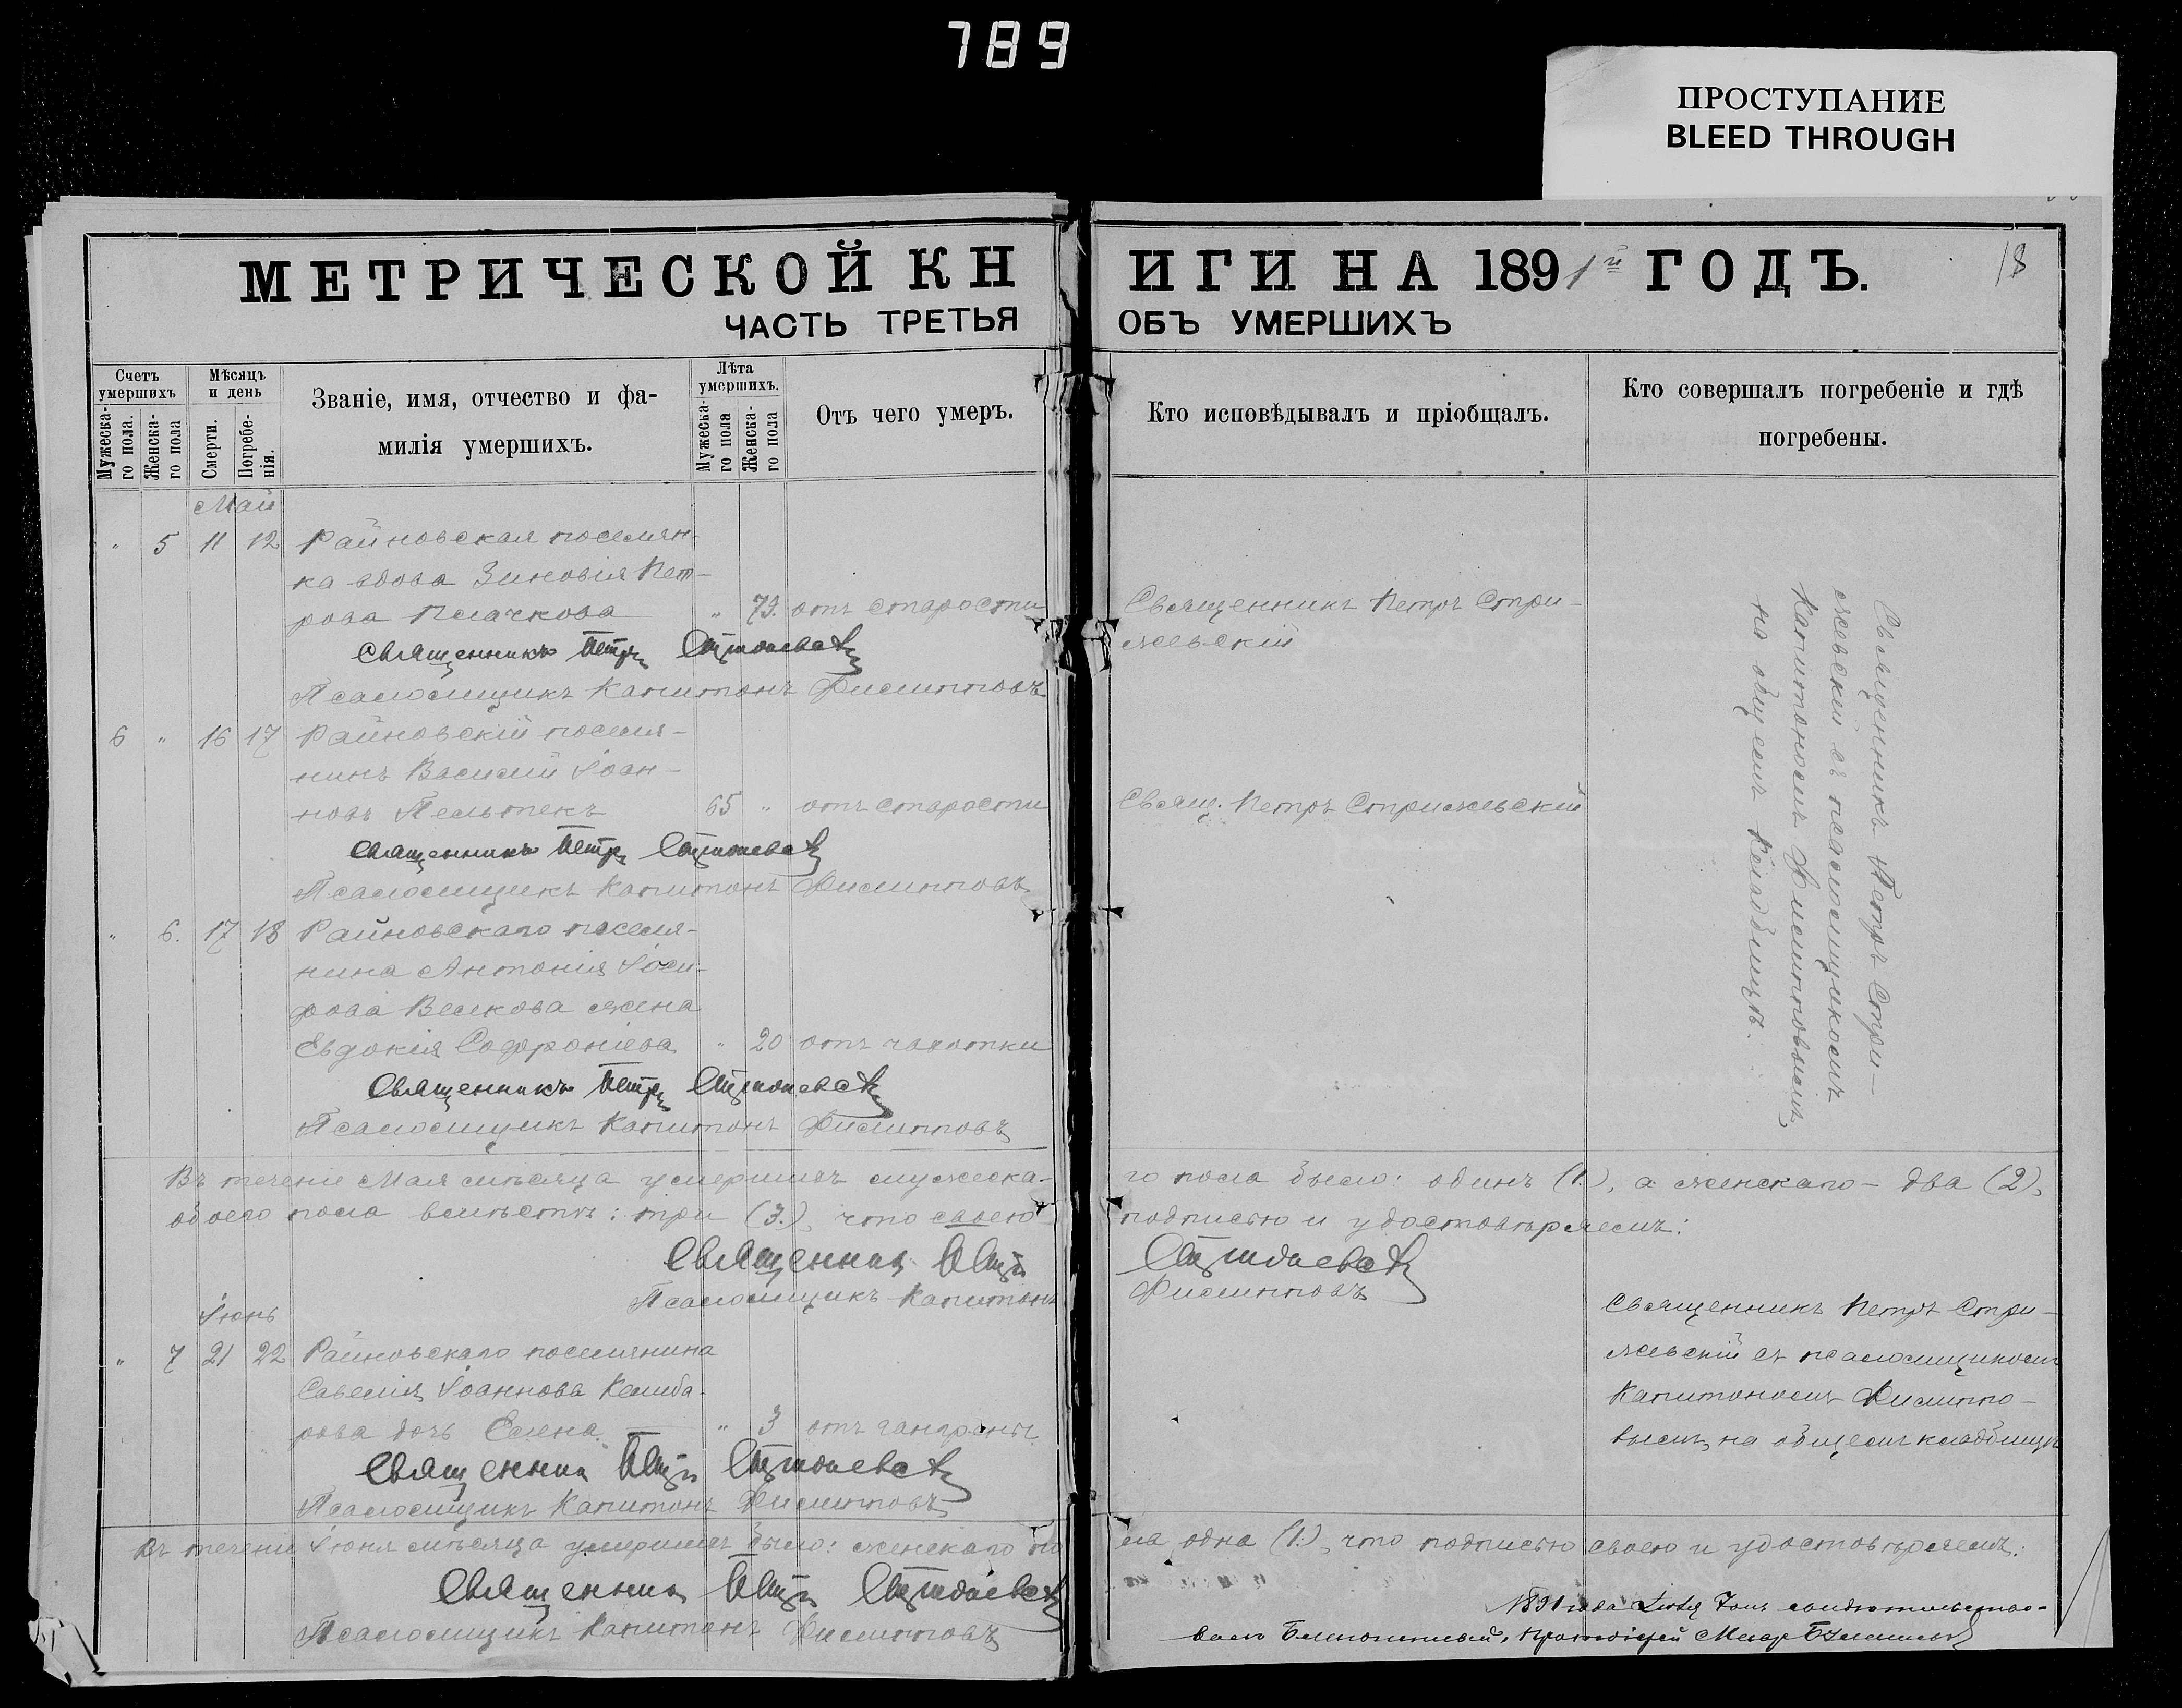 789
ПРОСТУПАНИЕ
BLEED THROUGH
МЕТРИЧЕСКОЙ КНИГИ НА 1891й ГОДЪ.
18
ЧАСТЬ ТРЕТЬЯ ОБЪ УМЕРШИХЪ
Счетъ умершихъ
Мужеска-го пола.
Женска-го пола
Мѣсяцъ и день
Смерти.
Погребе-нія.
Званіе, имя, отчество и фа-
милія умершихъ.
Лѣта умершихъ.
Мужеска-го пола
Женска-го пола
Отъ чего умеръ.
Кто исповѣдывалъ и пріобщалъ.
Кто совершалъ погребеніе и гдѣ
погребены.
Май
" 5 11 12 Райновская поселян-
ка вдова Зиновія Пет-
рова Плачкова " 73. отъ старости
Священникъ Петръ Стри-
жевскій
Священникъ Петръ Стрижевскій
Псаломщикъ Капитонъ Филипповъ
6 " 16 17 Райновскій поселя-
нинъ Василій Іоан-
новъ Пельтекъ 65 " отъ старости
Свящ. Петръ Стрижевскій
Священникъ Петръ Стрижевскій
Псаломщикъ Капитонъ Филипповъ
" 6. 17 18 Райновскаго поселя-
нина Антонія
Велкова жена
Евдокія Софроніева " 20 отъ чахотки
Священникъ Петръ Стрижевскій
Псаломщикъ Капитонъ Филипповъ
Священникъ Петръ Стри-
жевскій съ псаломщикомъ
Капитономъ Филипповымъ
на общемъ кладбищѣ.
Въ теченіе Мая мѣсяца умершихъ мужеска-го пола было: одинъ (1.), а женскаго - два (2),
обоего пола вмѣстѣ: три (3.), что своею подписью и удостовѣряемъ:
Священникъ Петръ Стрижевскій
Псаломщикъ Капитонъ Филипповъ
Іюнь
" 7 21 22 Райновскаго поселянина
Савелія Іоаннова Келиба-
рова дочь Елена. " 3 отъ гангрены.
Священникъ Петръ Стри-
жевскій съ псаломщикомъ
Капитономъ Филиппо-
вымъ, на общемъ кладбищѣ
Священникъ Петръ Стрижевскій
Псаломщикъ Капитонъ Филипповъ
Въ теченіи Іюня мѣсяца умершихъ было: женскаго по-ла одна (1.), что подписью своею и удостовѣряемъ:
Священникъ Петръ Стрижевскій
Псаломщикъ Капитонъ Филипповъ
1891 года
Благочинный, Протоіерей